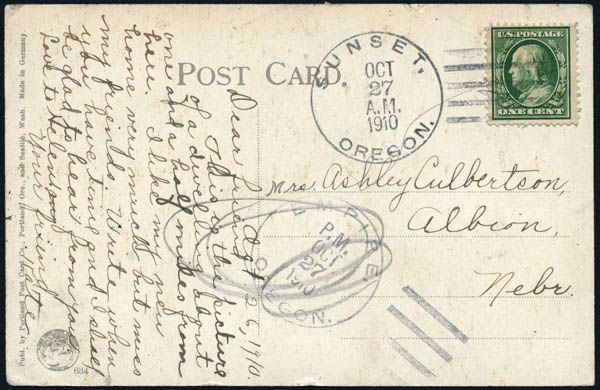 POST CARD.
SUNSET,
OCT
27
A.M.
1910
OREGON.
U.S. POSTAGE
ONE CENT
Mrs Ashley Culbertson,
Albion,
Nebr.
EMPIRE,
P.M.
OCT
27
1910
OREGON.
Oct 26, 1910.
Dear friend,
This is the picture
of a dwell about
one and a half miles from
here. I like my new
home very much but miss
my friends. Write when
you have time and I shall
be glad to hear from you
Love to Helen
Your friend,
Kate.
Publ. by Portland Post Card Co., Portland Ore., and Seattle, Wash. Made in Germany.
634